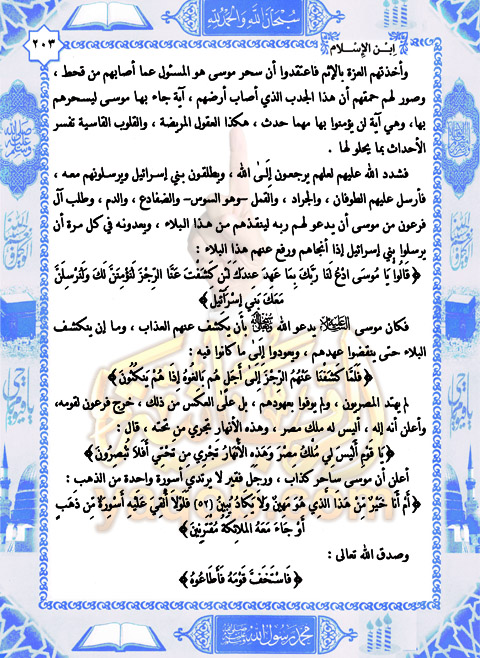 سبحان الله والحمد لله
٢٠٣
ابن الإسلام
وأخذتهم العزة بالإثم فاعتقدوا أن سحر موسى هو المسئول عما أصابهم من قحط ،
وصور لهم حمقهم أن هذا الجدب الذي أصاب أرضهم ، آية جاء بها موسى ليسحرهم
بها، وهي آية لن يؤمنوا بها مهما حدث ، هكذا العقول المريضة ، والقلوب القاسية تفسر
الأحداث بما يحلو لها .
فشدد الله عليهم لعلهم يرجعون إلَىٰ الله ، ويطلقون بني إسرائيل ويرسلونهم معه ،
فأرسل عليهم الطوفان ، والجراد ، والقمل -وهو السوس- والضفادع ، والدم ، وطلب آل
فرعون من موسى أن يدعو لهم ربه لينقذهم من هذا البلاء ، ويعدونه في كل مرة أن
يرسلوا بني إسرائيل إذا أنجاهم ورفع عنهم هذا البلاء :
﴿ قَالُوا يَا مُوسَى ادْعُ لَنَا رَبَّكَ بِمَا عَهِدَ عِندَكَ لَئِن كَشَفْتَ عَنَّا الرِّجْزَ لَنُؤْمِنَنَّ لَكَ وَلَنُرْسِلَنَّ
مَعَكَ بَنِي إِسْرَائِيلَ ﴾
فكان موسى عليه السلام يدعو الله ﷿ بأن يكشف عنهم العذاب ، وما إن ينكشف
البلاء حتى ينقضوا عهدهم ، ويعودوا إلَىٰ ما كانوا فيه :
﴿ فَلَمَّا كَشَفْنَا عَنْهُمُ الرِّجْزَ إِلَىٰ أَجَلٍ هُم بَالِغُوهُ إِذَا هُمْ يَنكُثُونَ ﴾
لم يهتد المصريون ، ولم يوفوا بعهودهم ، بل علَىٰ العكس من ذلك ، خرج فرعون لقومه،
وأعلن أنه إله ، أليس له ملك مصر ، وهذه الأنهار تجري من تحته ، قال :
﴿ يَا قَوْمِ أَلَيْسَ لِي مُلْكُ مِصْرَ وَهَذِهِ الأَنْهَارُ تَجْرِي مِن تَحْتِي أَفَلاَ تُبْصِرُونَ ﴾
أعلن أن موسى ساحر كذاب ، ورجل فقير لا يرتدي أسورة واحدة من الذهب :
﴿ أَمْ أَنَا خَيْرٌ مِّنْ هَذَا الَّذِي هُوَ مَهِينٌ وَلاَ يَكَادُ يُبِينُ (٥٢) فَلَوْلاَ أُلْقِيَ عَلَيْهِ أَسْوِرَةٌ مِّن ذَهَبٍ
أَوْ جَاءَ مَعَهُ المَلائِكَةُ مُقْتَرِنِينَ ﴾
وصدق الله تعالى :
﴿ فَاسْتَخَفَّ قَوْمَهُ فَأَطَاعُوهُ ﴾
محمد رسول الله